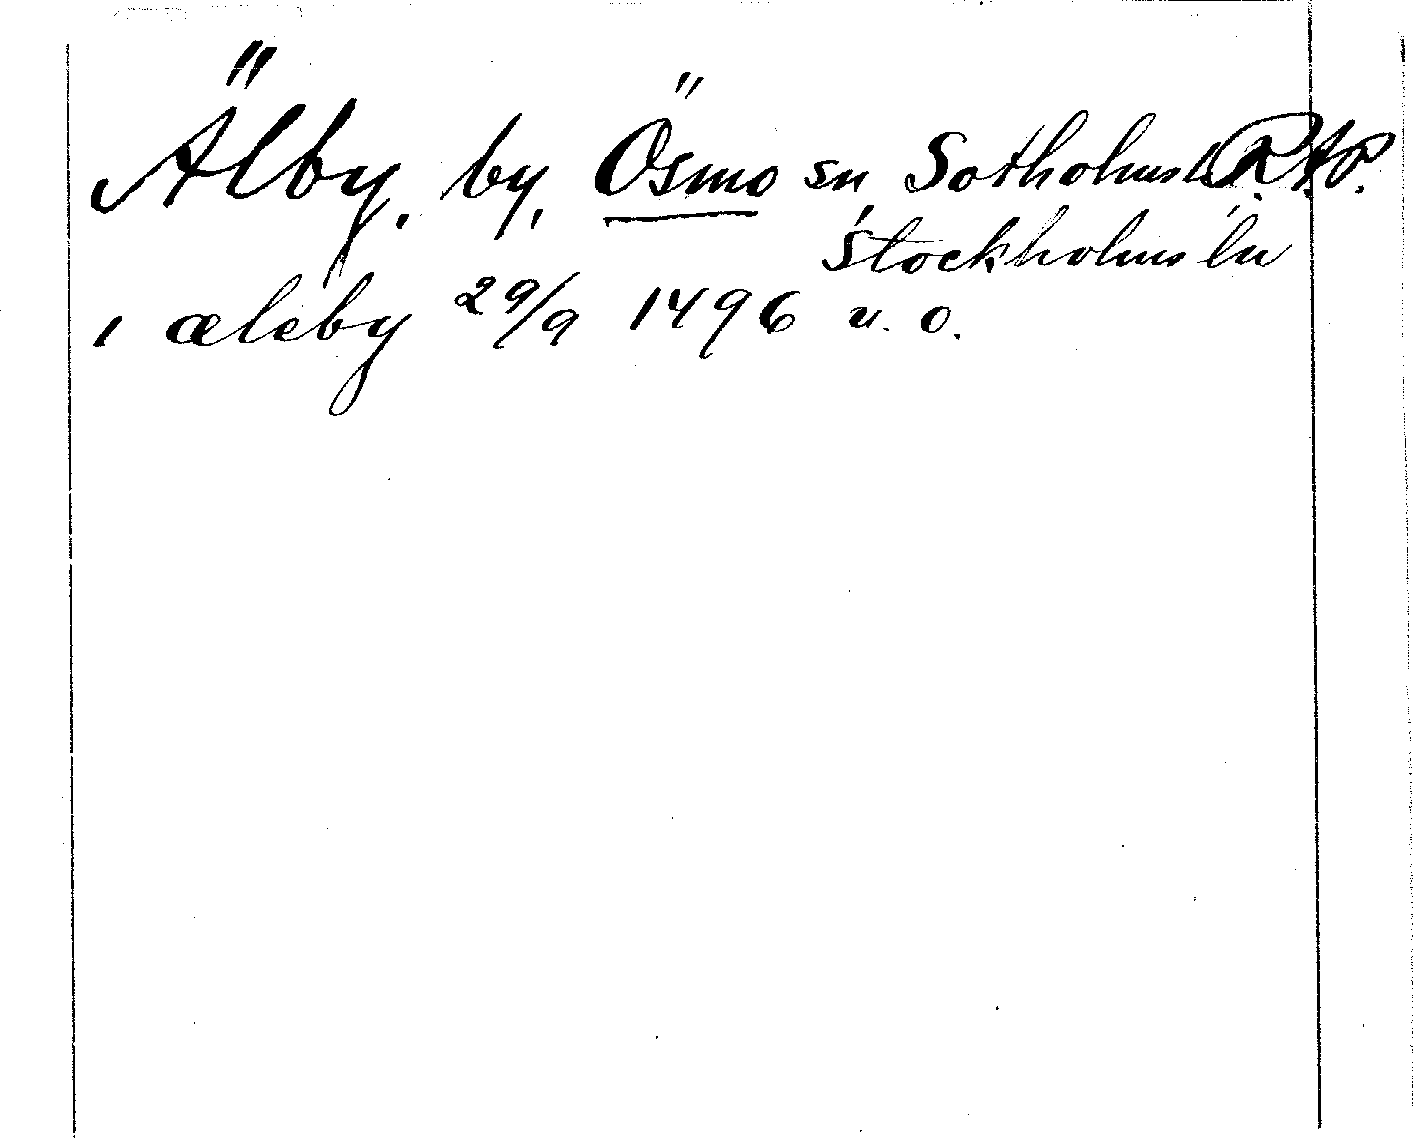 Älby, by, Ösmo sn, Sotholms h. R.A.P.
Stockholms län
i æleby 29/9 1496 u. o.